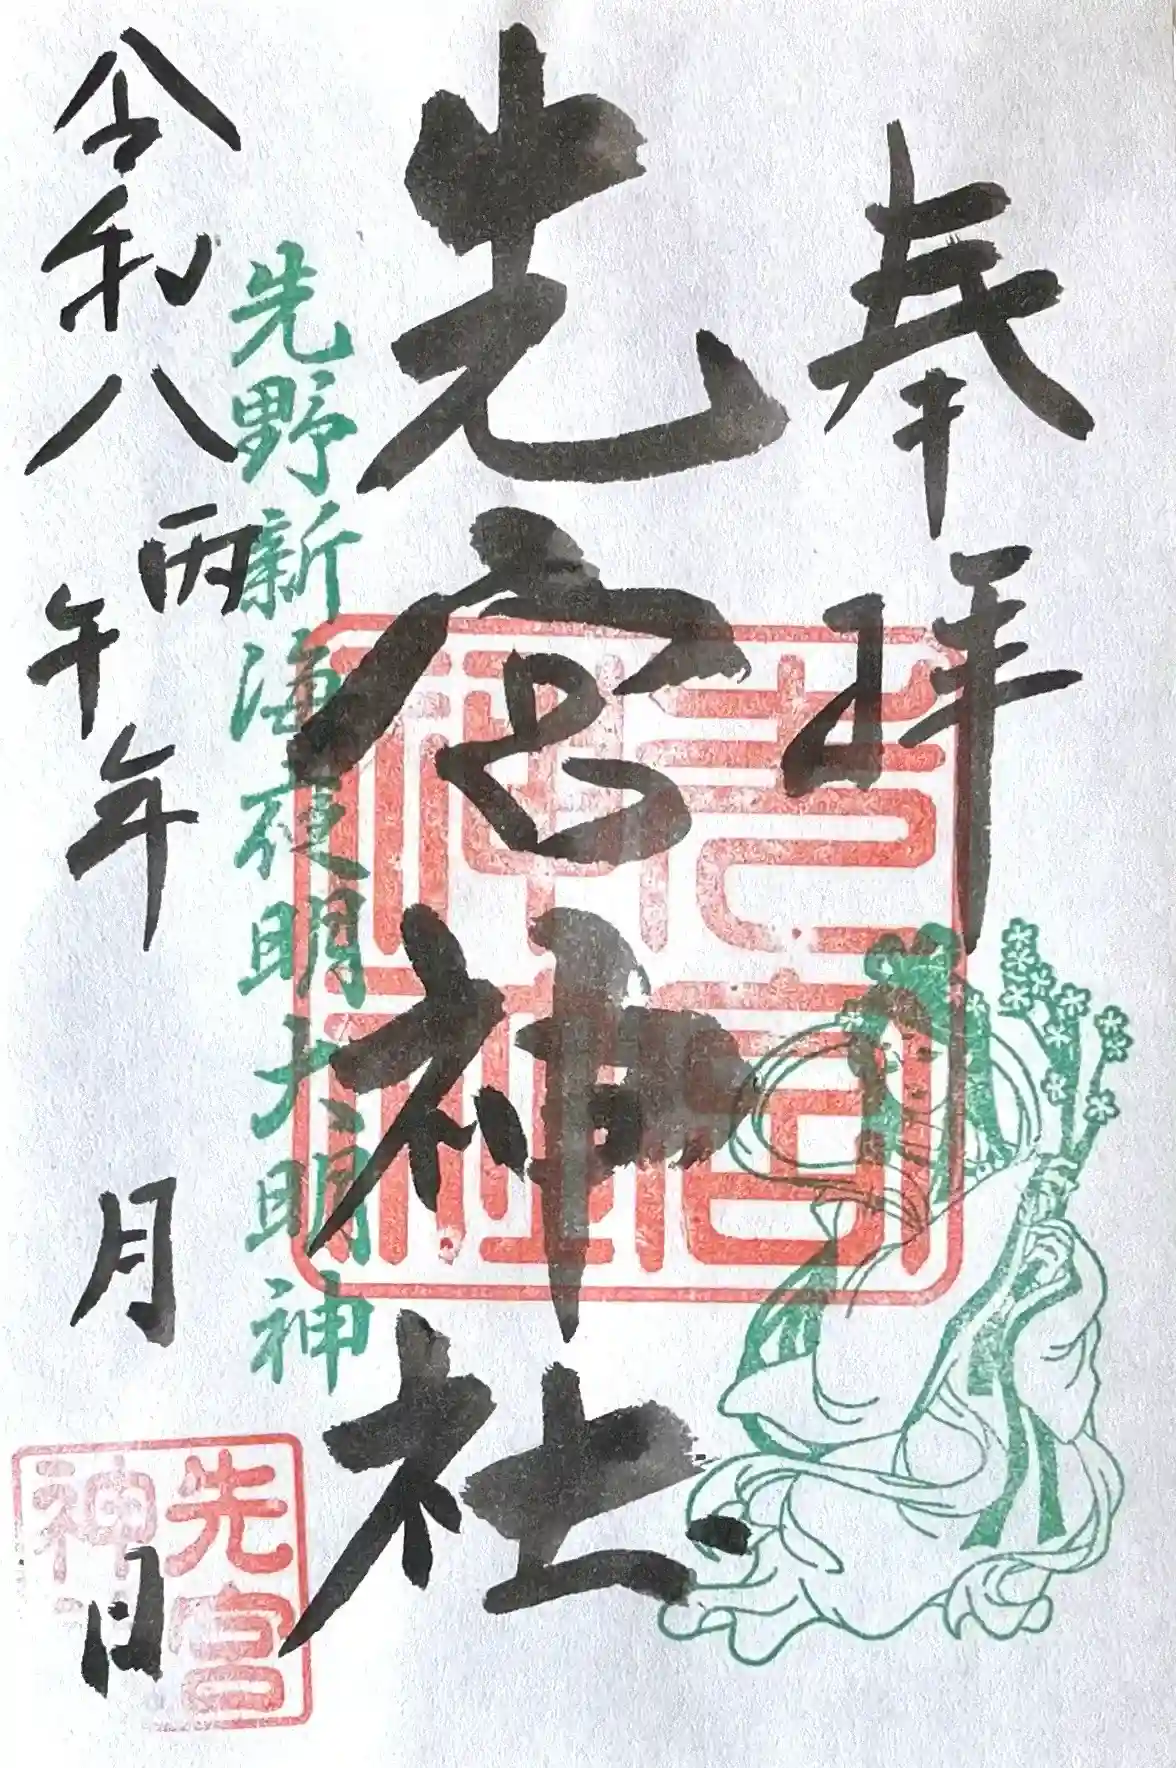 奉拝
先宮神社
先野新海夜明大明神
令和八丙午年 月 日
先宮
神社
先宮
神